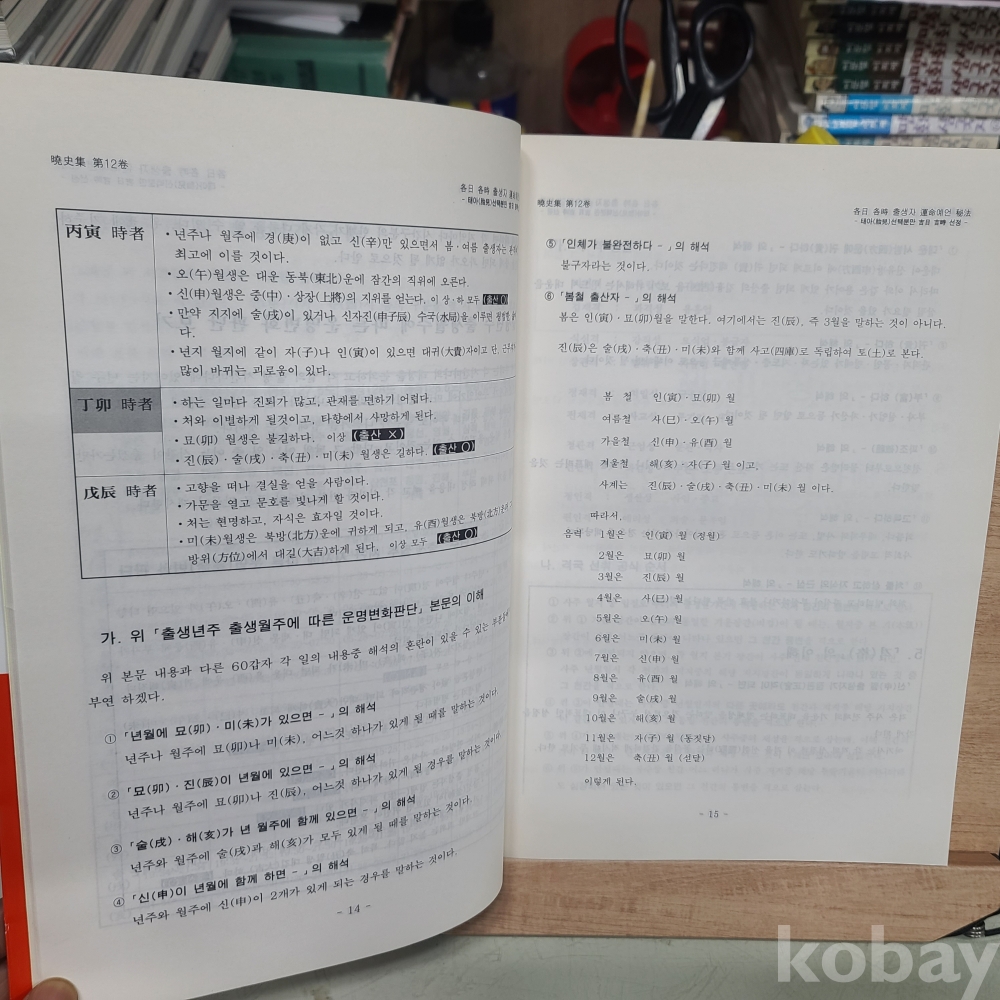 曉史集 第12卷
各日 各時 출생자 運命
- 태아(胎兒)선택분만
丙寅 時者
• 년주나 월주에 경(庚)이 없고 신(辛)만 있으면서 봄·여름 출생자는
최고에 이를 것이다.
• 오(午)월생은 대운 동북(東北)운에 잠간의 직위에 오른다.
• 신(申)월생은 중(中)·상장(上將)의 지위를 얻는다. 이 상·하 모두 (출산 O)
• 만약 지지에 술(戌)이 있거나 신자진(申子辰) 수국(水局)을 이루면
다.
• 년지 월지에 같이 자(子)나 인(寅)이 있으면 대귀(大貴)자이고 단,
많이 바뀌는 괴로움이 있다.
丁卯 時者
• 하는 일마다 진퇴가 많고, 관재를 면하기 어렵다.
• 처와 이별하게 될것이고, 타향에서 사망하게 된다.
• 묘(卯) 월생은 불길하다. 이상 (출산 X)
• 진(辰)·술(戌)·축(丑)·미(未) 월생은 길하다. (출산 O)
戊辰 時者
• 고향을 떠나 결실을 얻을 사람이다.
• 가문을 열고 문호를 빛나게 할 것이다.
• 처는 현명하고, 자식은 효자일 것이다.
• 미(未)월생은 북방(北方)운에 귀하게 되고, 유(酉)월생은 북방(北方)
방위(方位)에서 대길(大吉)하게 된다. 이상 모두 (출산 O)
가. 위 「출생년주 출생월주에 따른 운명변화판단」 본문의 이해
위 본문 내용과 다른 60갑자 각 일의 내용중 해석의 혼란이 있을 수 있는
부연 하겠다.
① 「년월에 묘(卯)·미(未)가 있으면 -」의 해석
년주나 월주에 묘(卯)나 미(未), 어느것 하나가 있게 될 때를 말하는 것이다.
② 「묘(卯)·진(辰)이 년월에 있으면 -」의 해석
년주나 월주에 묘(卯)나 진(辰), 어느것 하나가 있게 될 경우를 말하는 것이다.
③ 「술(戌)·해(亥)가 년 월주에 함께 있으면 -」의 해석
년주와 월주에 술(戌)과 해(亥)가 모두 있게 될 때를 말하는 것이다.
④ 「신(申)이 년월에 함께 하면 -」의 해석
년주와 월주에 신(申)이 2개가 있게 되는 경우를 말하는 것이다.
- 14 -
曉史集 第12卷
各日 各時 출생자 運命예언 秘法
- 태아(胎兒)선택분만 吉日·吉時 선정 -
⑤ 「인체가 불완전하다 -」의 해석
불구자라는 것이다.
⑥ 「봄철 출산자 -」의 해석
봄은 인(寅)·묘(卯)월을 말한다. 여기에서는 진(辰), 즉 3월을 말하는 것이 아니다.
진(辰)은 술(戌)·축(丑)·미(未)와 함께 사고(四庫)로 독립하여 토(土)로 본다.
봄 철 인(寅)·묘(卯) 월
여름철 사(巳)·오(午) 월
가을철 신(申)·유(酉) 월
겨울철 해(亥)·자(子) 월 이고,
사계는 진(辰)·술(戌)·축(丑)·미(未) 월 이다.
따라서,
음력 1월은 인(寅) 월 (정월)
2월은 묘(卯) 월
3월은 진(辰) 월
4월은 사(巳) 월
5월은 오(午) 월
6월은 미(未) 월
7월은 신(申) 월
8월은 유(酉) 월
9월은 술(戌) 월
10월은 해(亥) 월
11월은 자(子) 월 (동짓달)
12월은 축(丑) 월 (섣달)
이렇게 된다.
- 15 -
kobay